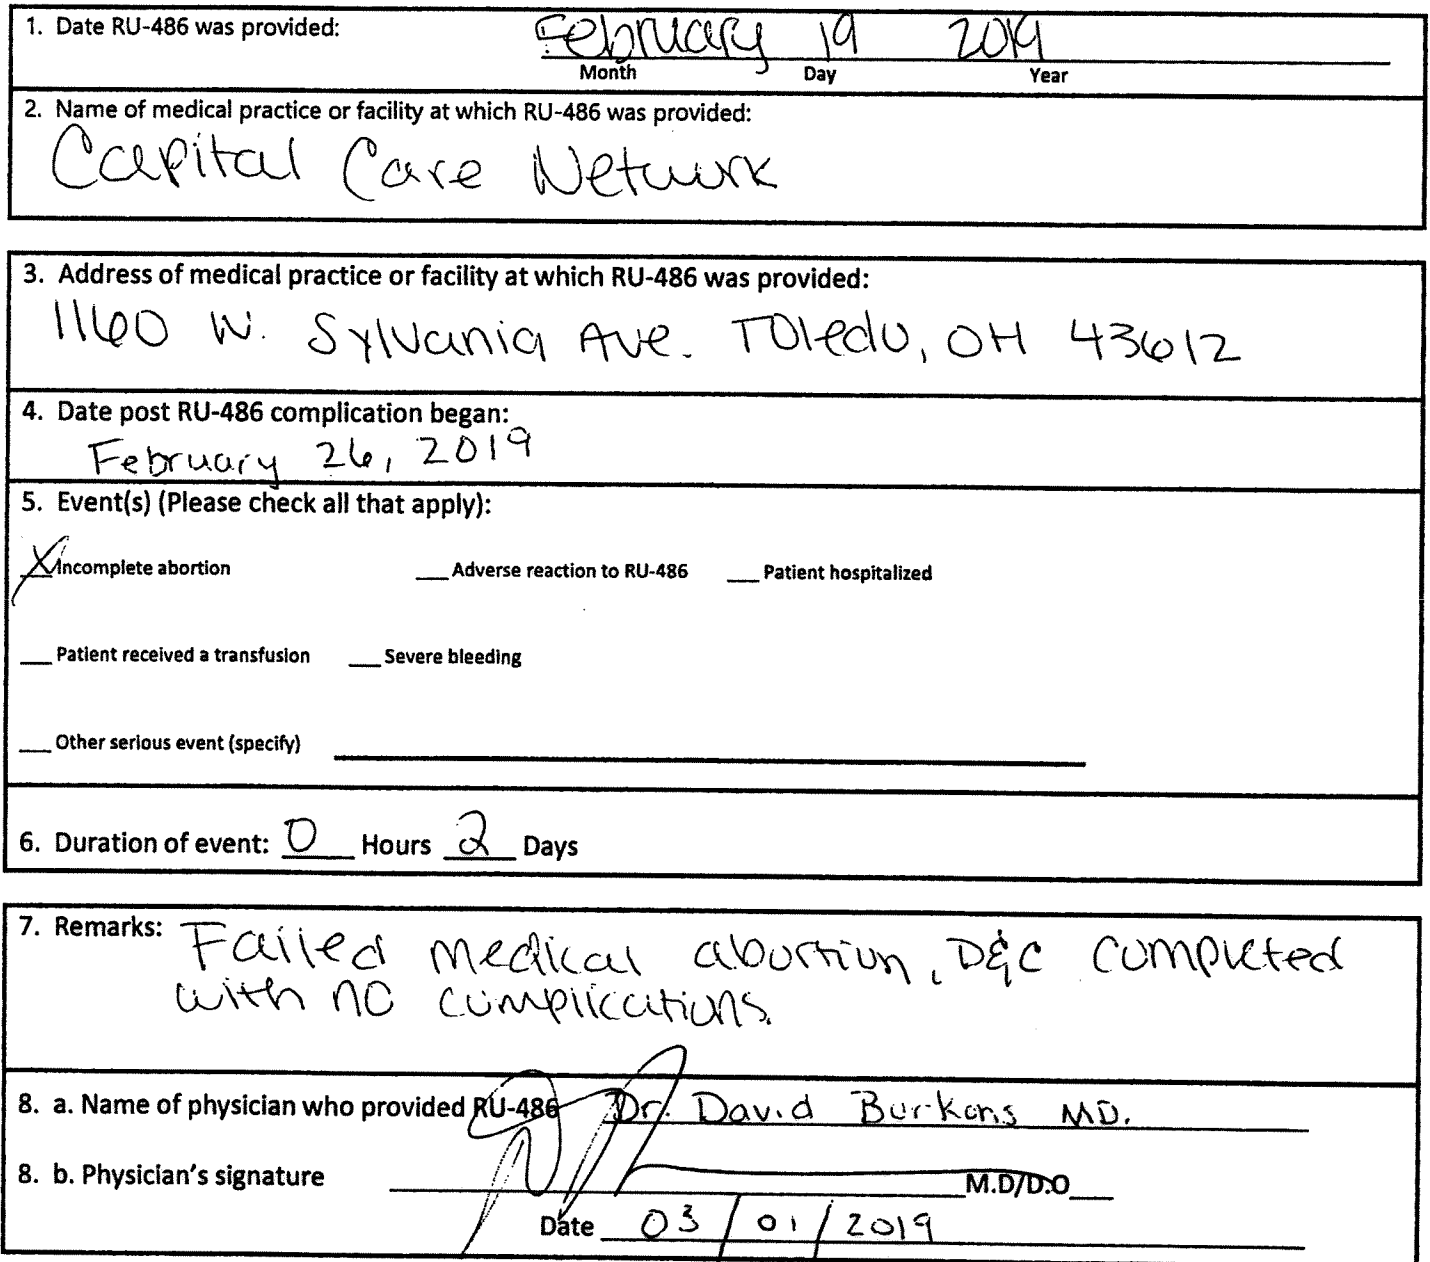 1. Date RU-486 was provided: February 19 2019
Month Day Year
2. Name of medical practice or facility at which RU-486 was provided:
Capital Care Network
3. Address of medical practice or facility at which RU-486 was provided:
1160 W. Sylvania Ave. Toledo, OH 43612
4. Date post RU-486 complication began:
February 26, 2019
5. Event(s) (Please check all that apply):
X Incomplete abortion ___ Adverse reaction to RU-486 ___ Patient hospitalized
___ Patient received a transfusion ___ Severe bleeding
___ Other serious event (specify)
6. Duration of event: 0 Hours 2 Days
7. Remarks: Failed medical abortion, D&C completed
with no complications.
8. a. Name of physician who provided RU-486 Dr. David Burkons MD.
8. b. Physician's signature M.D/D.O
Date 03/01/2019